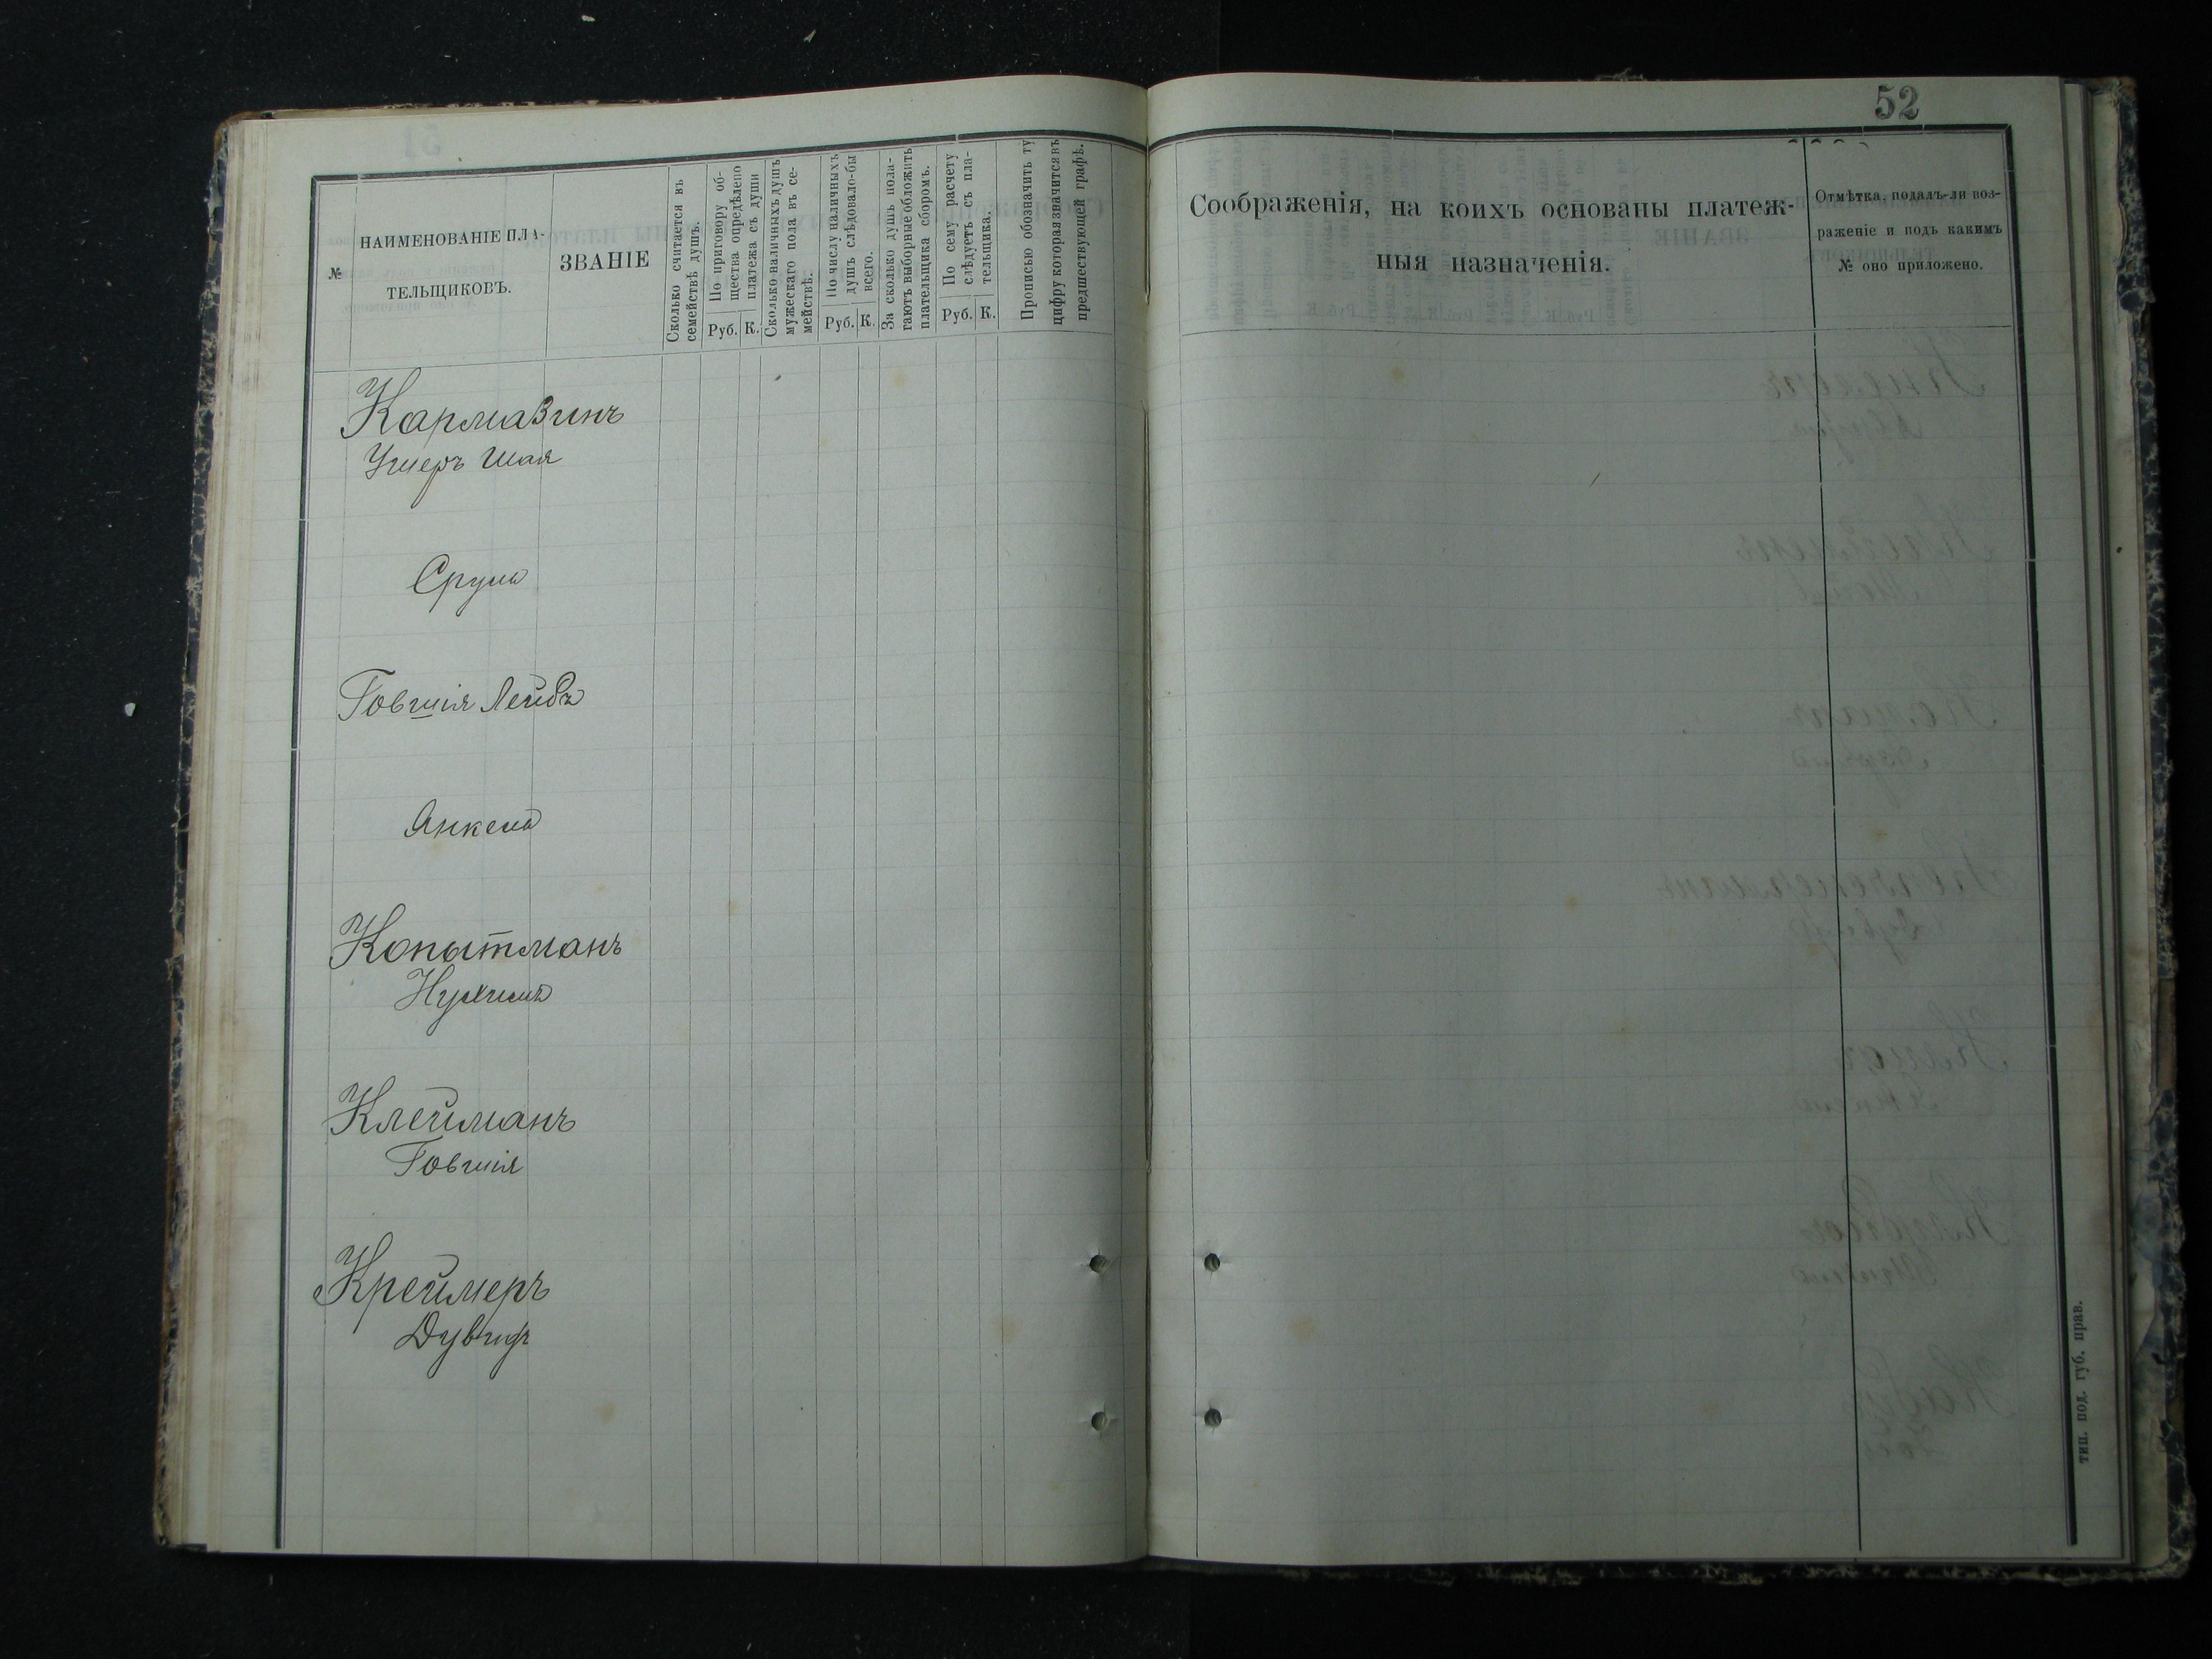 52
№
НАИМЕНОВАНІЕ ПЛА-
ТЕЛЬЩИКОВЪ.
ЗВАНІЕ
Сколько считается въ
семействѣ душъ.
По приговору об-
щества опредѣлено
платежа съ души
Руб. К.
Сколько наличныхъ душъ
мужескаго пола въ се-
мействѣ.
По числу наличныхъ
душъ слѣдовало-бы
всего.
Руб. К.
За сколько душъ пола-
гаютъ выборные обложить
плательщика сборомъ.
По сему расчету
слѣдуетъ съ пла-
тельщика.
Руб. К.
Прописью обозначить ту
цифру которая значится въ
предшествующей графѣ.
Соображенія, на коихъ основаны платеж-
ныя назначенія.
Отмѣтка, подалъ-ли воз-
раженіе и подъ какимъ
№ оно приложено.
Кармазинъ
Ушеръ Шая
Сруль
Іовшія Лейбъ
Янкель
Копытманъ
Нухимъ
Клейманъ
Іовшія
Креймеръ
Дувидъ
тип. под. губ. прав.